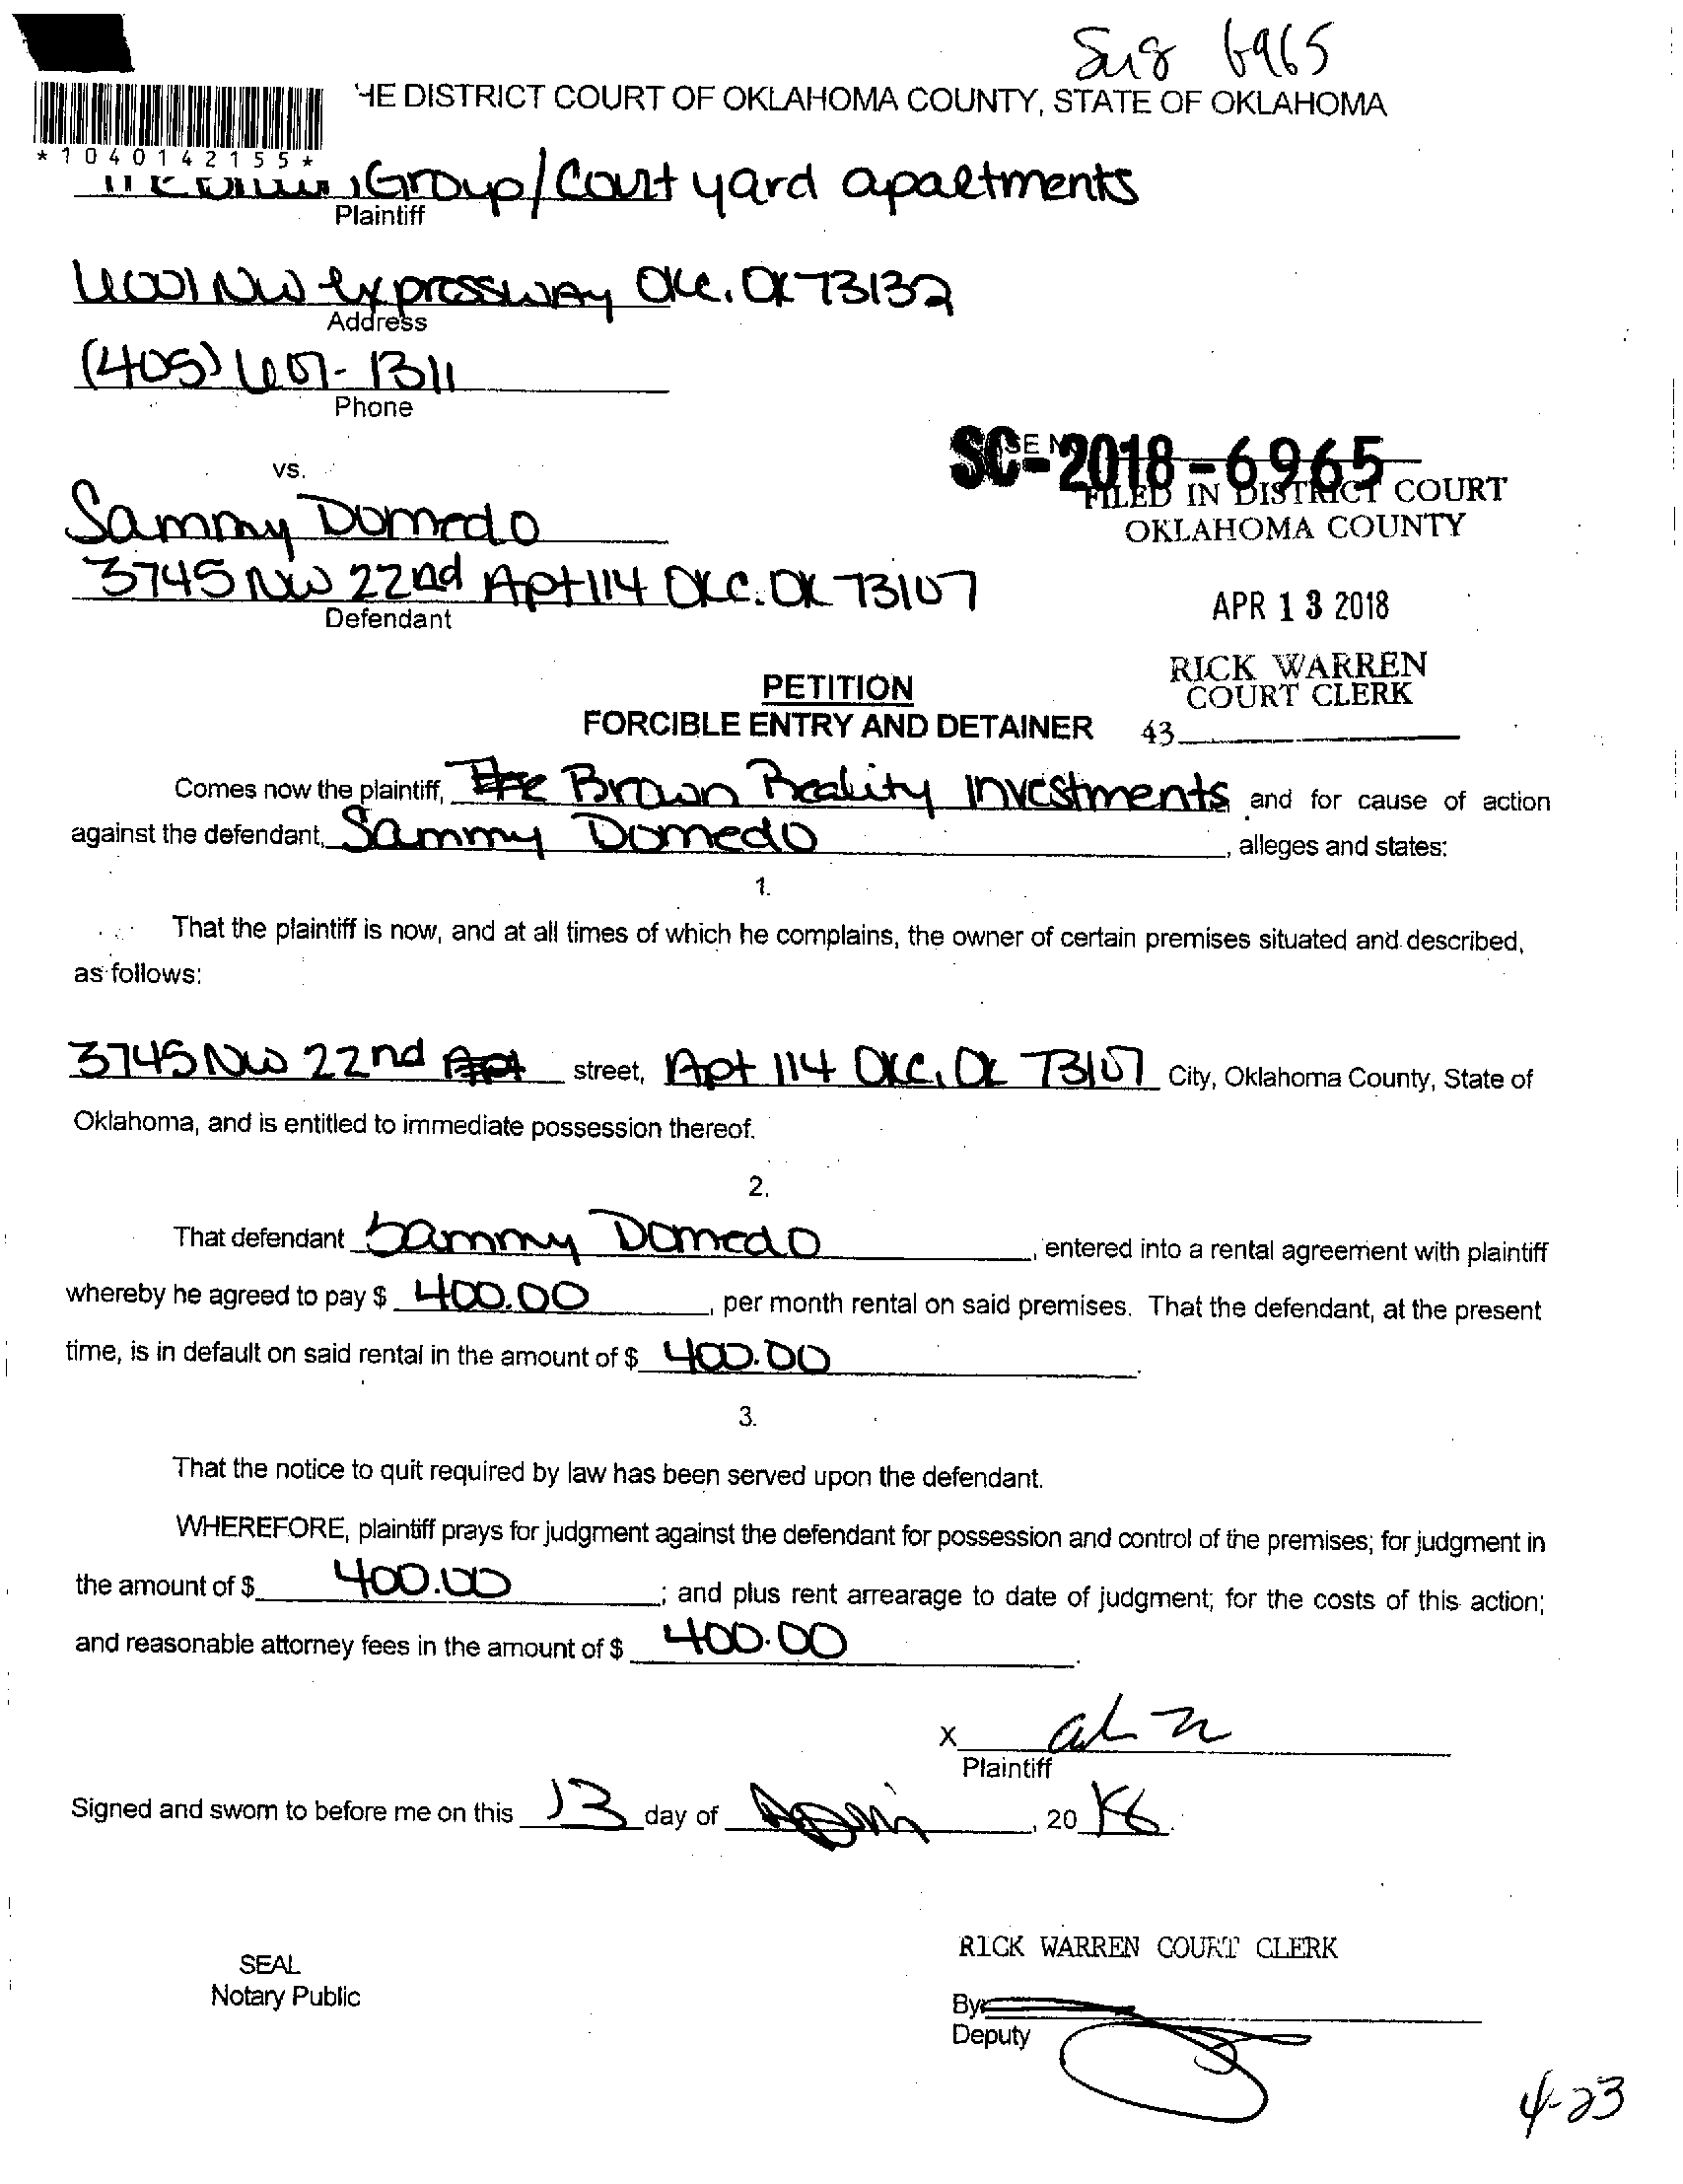 6965
HE DISTRICT COURT OF OKLAHOMA COUNTY, STATE OF OKLAHOMA
*1040142155*
Group/Court yard apartments
Plaintiff
6001 NW Expressway OKC. OK 73132
Address
(405) 607-1311
Phone
SC-2018-6965
vs.
FILED IN DISTRICT COURT
OKLAHOMA COUNTY
Sammy Domedo
3745 NW 22nd Apt 114 OKC. OK 73107
Defendant
APR 13 2018
RICK WARREN
COURT CLERK
43
PETITION
FORCIBLE ENTRY AND DETAINER
Comes now the plaintiff, The Brown Reality Investments and for cause of action
against the defendant, Sammy Domedo, alleges and states:
1.
That the plaintiff is now, and at all times of which he complains, the owner of certain premises situated and described,
as follows:
3745 NW 22nd Apt street, Apt 114 OKC, OK 73107 City, Oklahoma County, State of
Oklahoma, and is entitled to immediate possession thereof.
2.
That defendant Sammy Domedo, entered into a rental agreement with plaintiff
whereby he agreed to pay $ 400.00, per month rental on said premises. That the defendant, at the present
time, is in default on said rental in the amount of $ 400.00.
3.
That the notice to quit required by law has been served upon the defendant.
WHEREFORE, plaintiff prays for judgment against the defendant for possession and control of the premises; for judgment in
the amount of $ 400.00; and plus rent arrearage to date of judgment; for the costs of this action;
and reasonable attorney fees in the amount of $ 400.00.
X
Plaintiff
Signed and sworn to before me on this 13 day of April, 2018.
RICK WARREN COURT CLERK
SEAL
Notary Public
By
Deputy
4-23